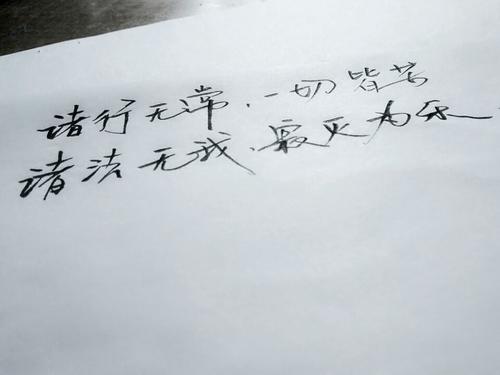 诸行无常，一切皆苦
诸法无我，寂灭为乐